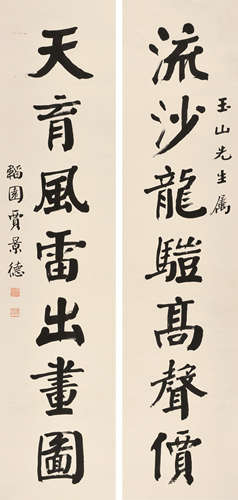 流沙龍騅高聲價
玉山先生屬
天育風雷出畫圖
韜園賈景德